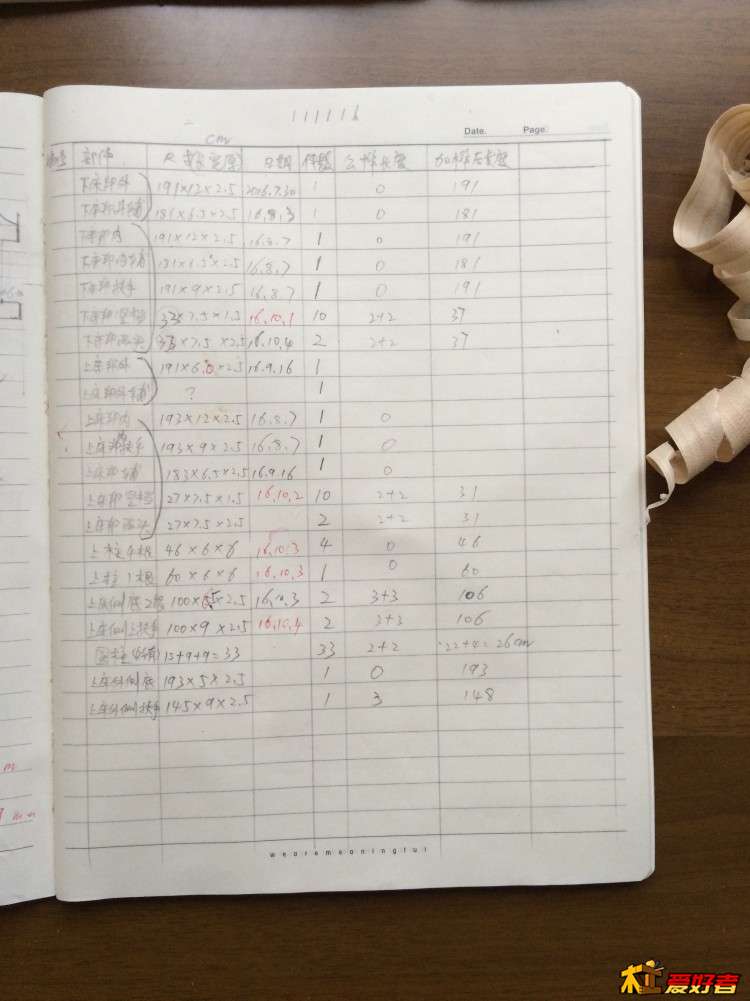 111116
cm
Date. Page.
部位 尺寸(长宽厚) 日期 件数 公榫长度 加榫后长度
下床邦外 191×12×2.5 2016.7.30 1 0 191
下床邦外辅 181×6.5×2.5 16.8.3 1 0 181
下床邦内 191×12×2.5 16.8.7 1 0 191
下床邦内辅 181×6.5×2.5 16.8.7 1 0 181
下床邦扶手 191×9×2.5 16.8.7 1 0 191
下床邦 33×7.5×1.5 16.10.1 10 2+2 37
下床邦 33×7.5×2.5 16.10.4 2 2+2 37
上床邦外 191×6.0×2.5 16.9.16 1
上床邦外辅 ? 1
上床邦内 193×12×2.5 16.8.7 1 0
上床邦扶手 193×9×2.5 16.8.7 1 0
上床邦辅 183×6.5×2.5 16.9.16 1 0
上床邦 27×7.5×1.5 16.10.2 10 2+2 31
上床邦 27×7.5×2.5 2 2+2 31
上柱4根 46×6×6 16.10.3 4 0 46
上柱1根 60×6×6 16.10.3 1 0 60
上床侧底2根 100×5×2.5 16.10.3 2 3+3 106
上床侧扶手 100×9×2.5 16.10.4 2 3+3 106
圆柱 15+9+9=33 33 2+2 22+4=26cm
上床外侧底 193×5×2.5 1 0 193
上床外侧扶手 145×9×2.5 1 3 148
wearemeaningful
m
mm
木工爱好者